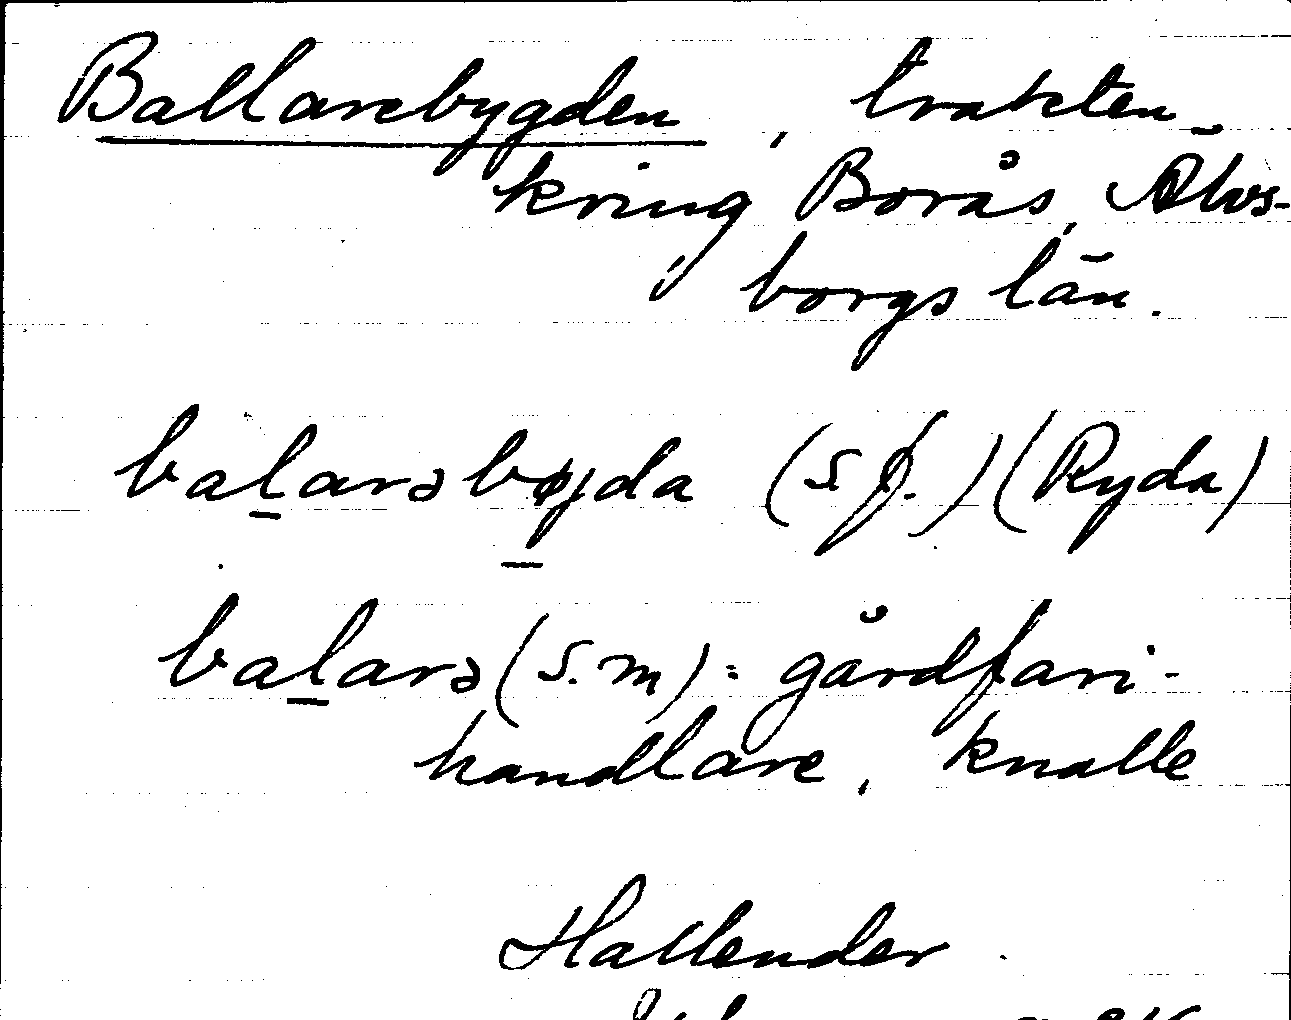 Ballarebygden, trakten
kring Borås, Älvs-
borgs län.
balarəbygda (s.f.) (Ryda)
balarə (s.m) = gårdfari-
handlare, knalle
Hallender